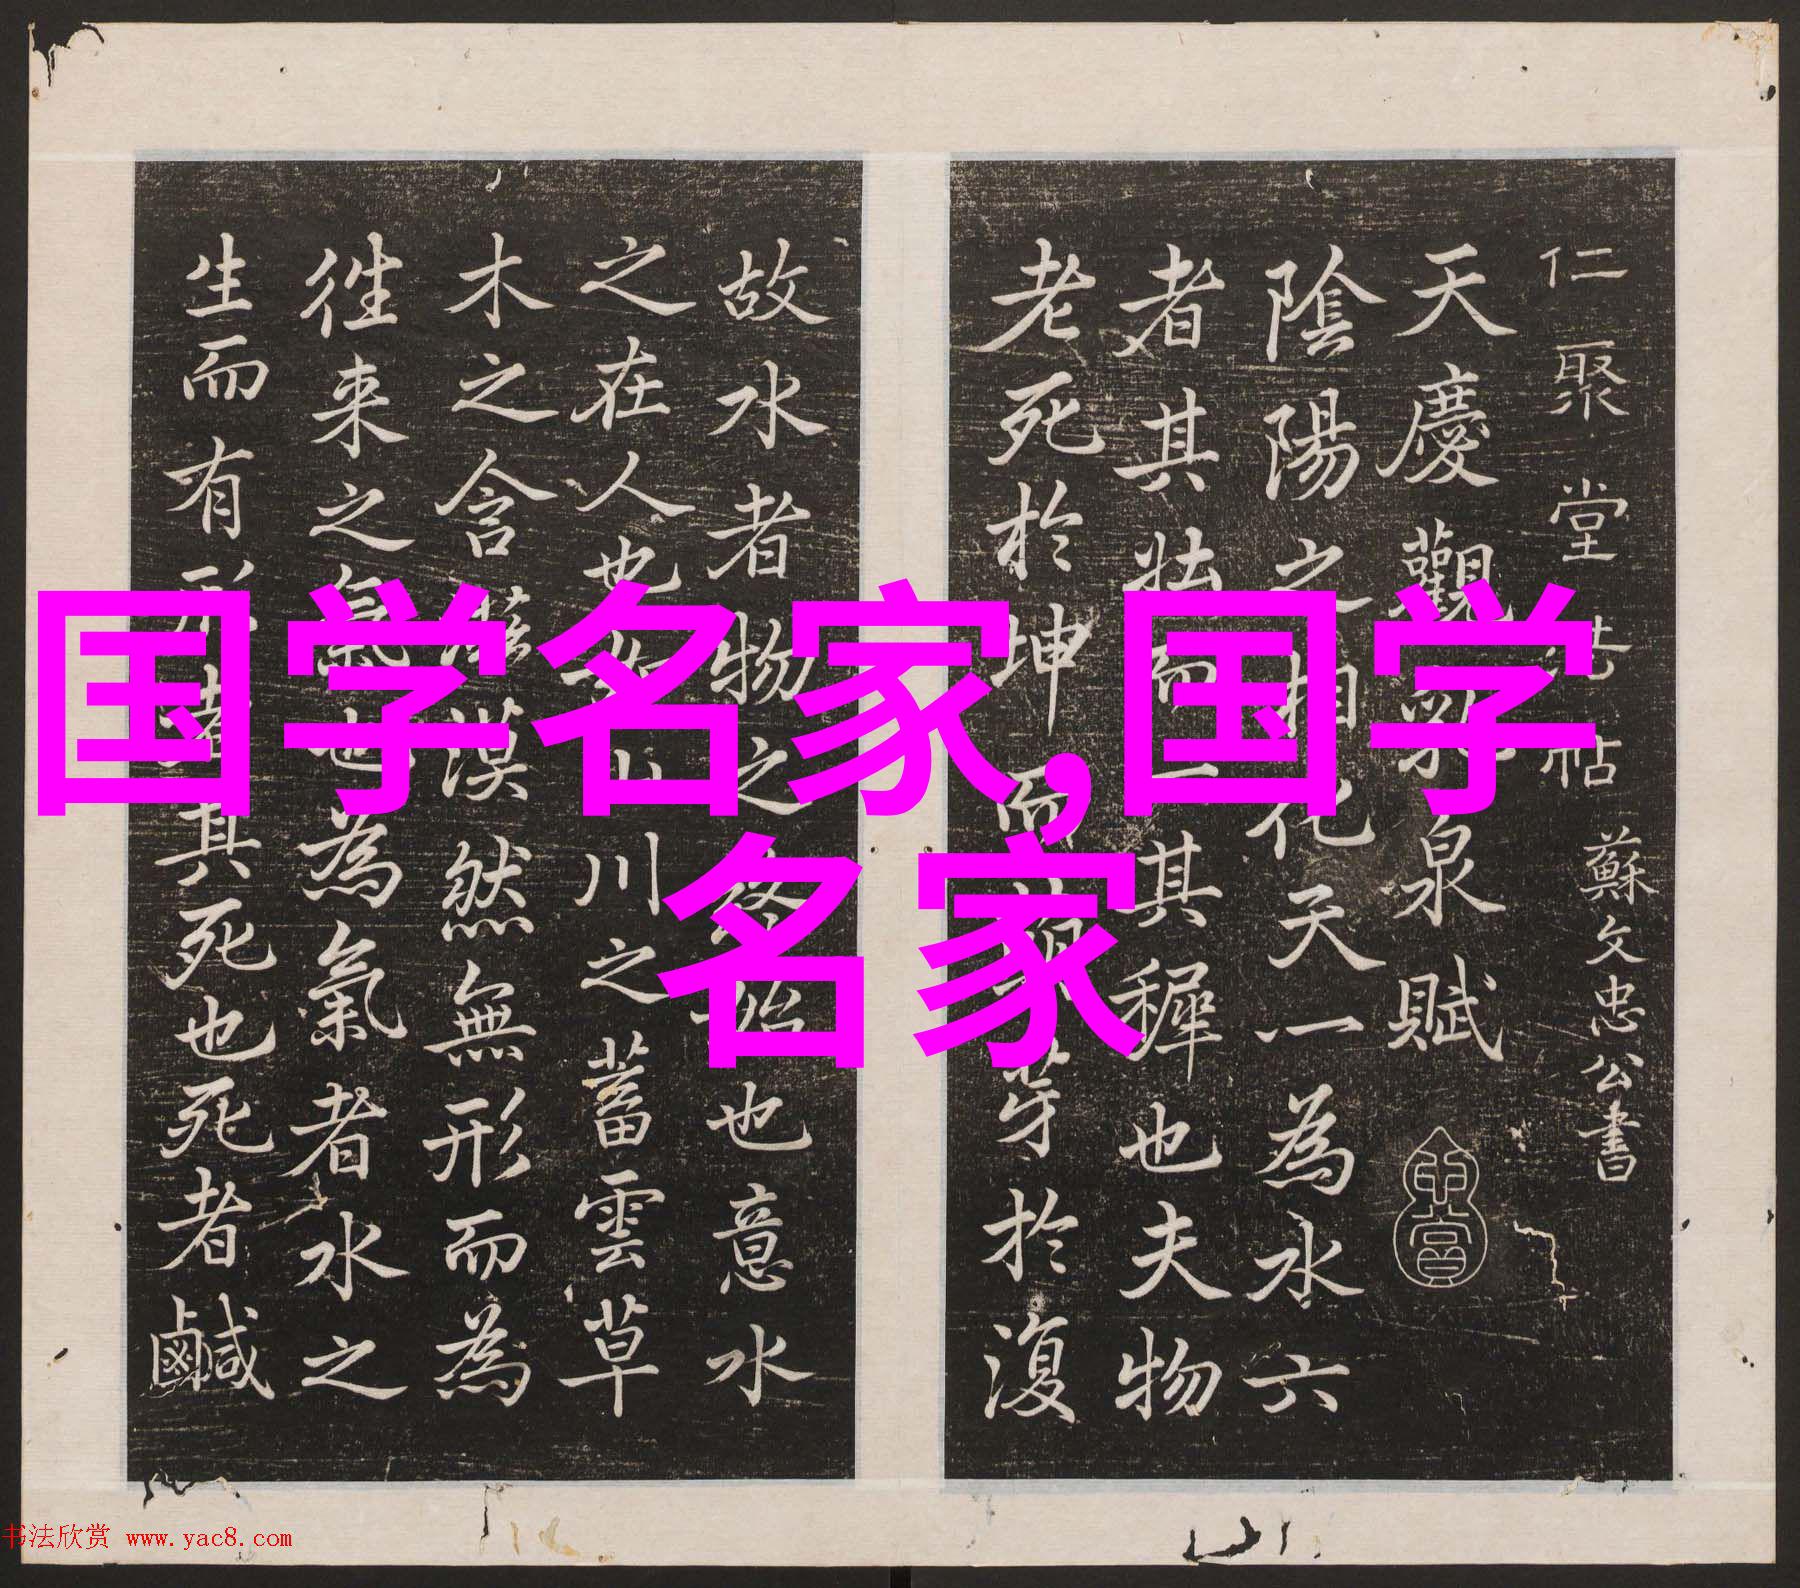 国学名家,国学
名家
仁聚堂法帖 蘇文忠公書
天慶觀乳泉賦
陰陽之相化天一為水六
者其壯而一其穉也夫物
老死於坤而萌芽於復
故水者物之終始也意水
之在人也如山川之蓄雲草
木之含滋漠然無形而為
往来之氣也為氣者水之
生而有形者其死也死者鹹
书法欣赏 www.yac8.com